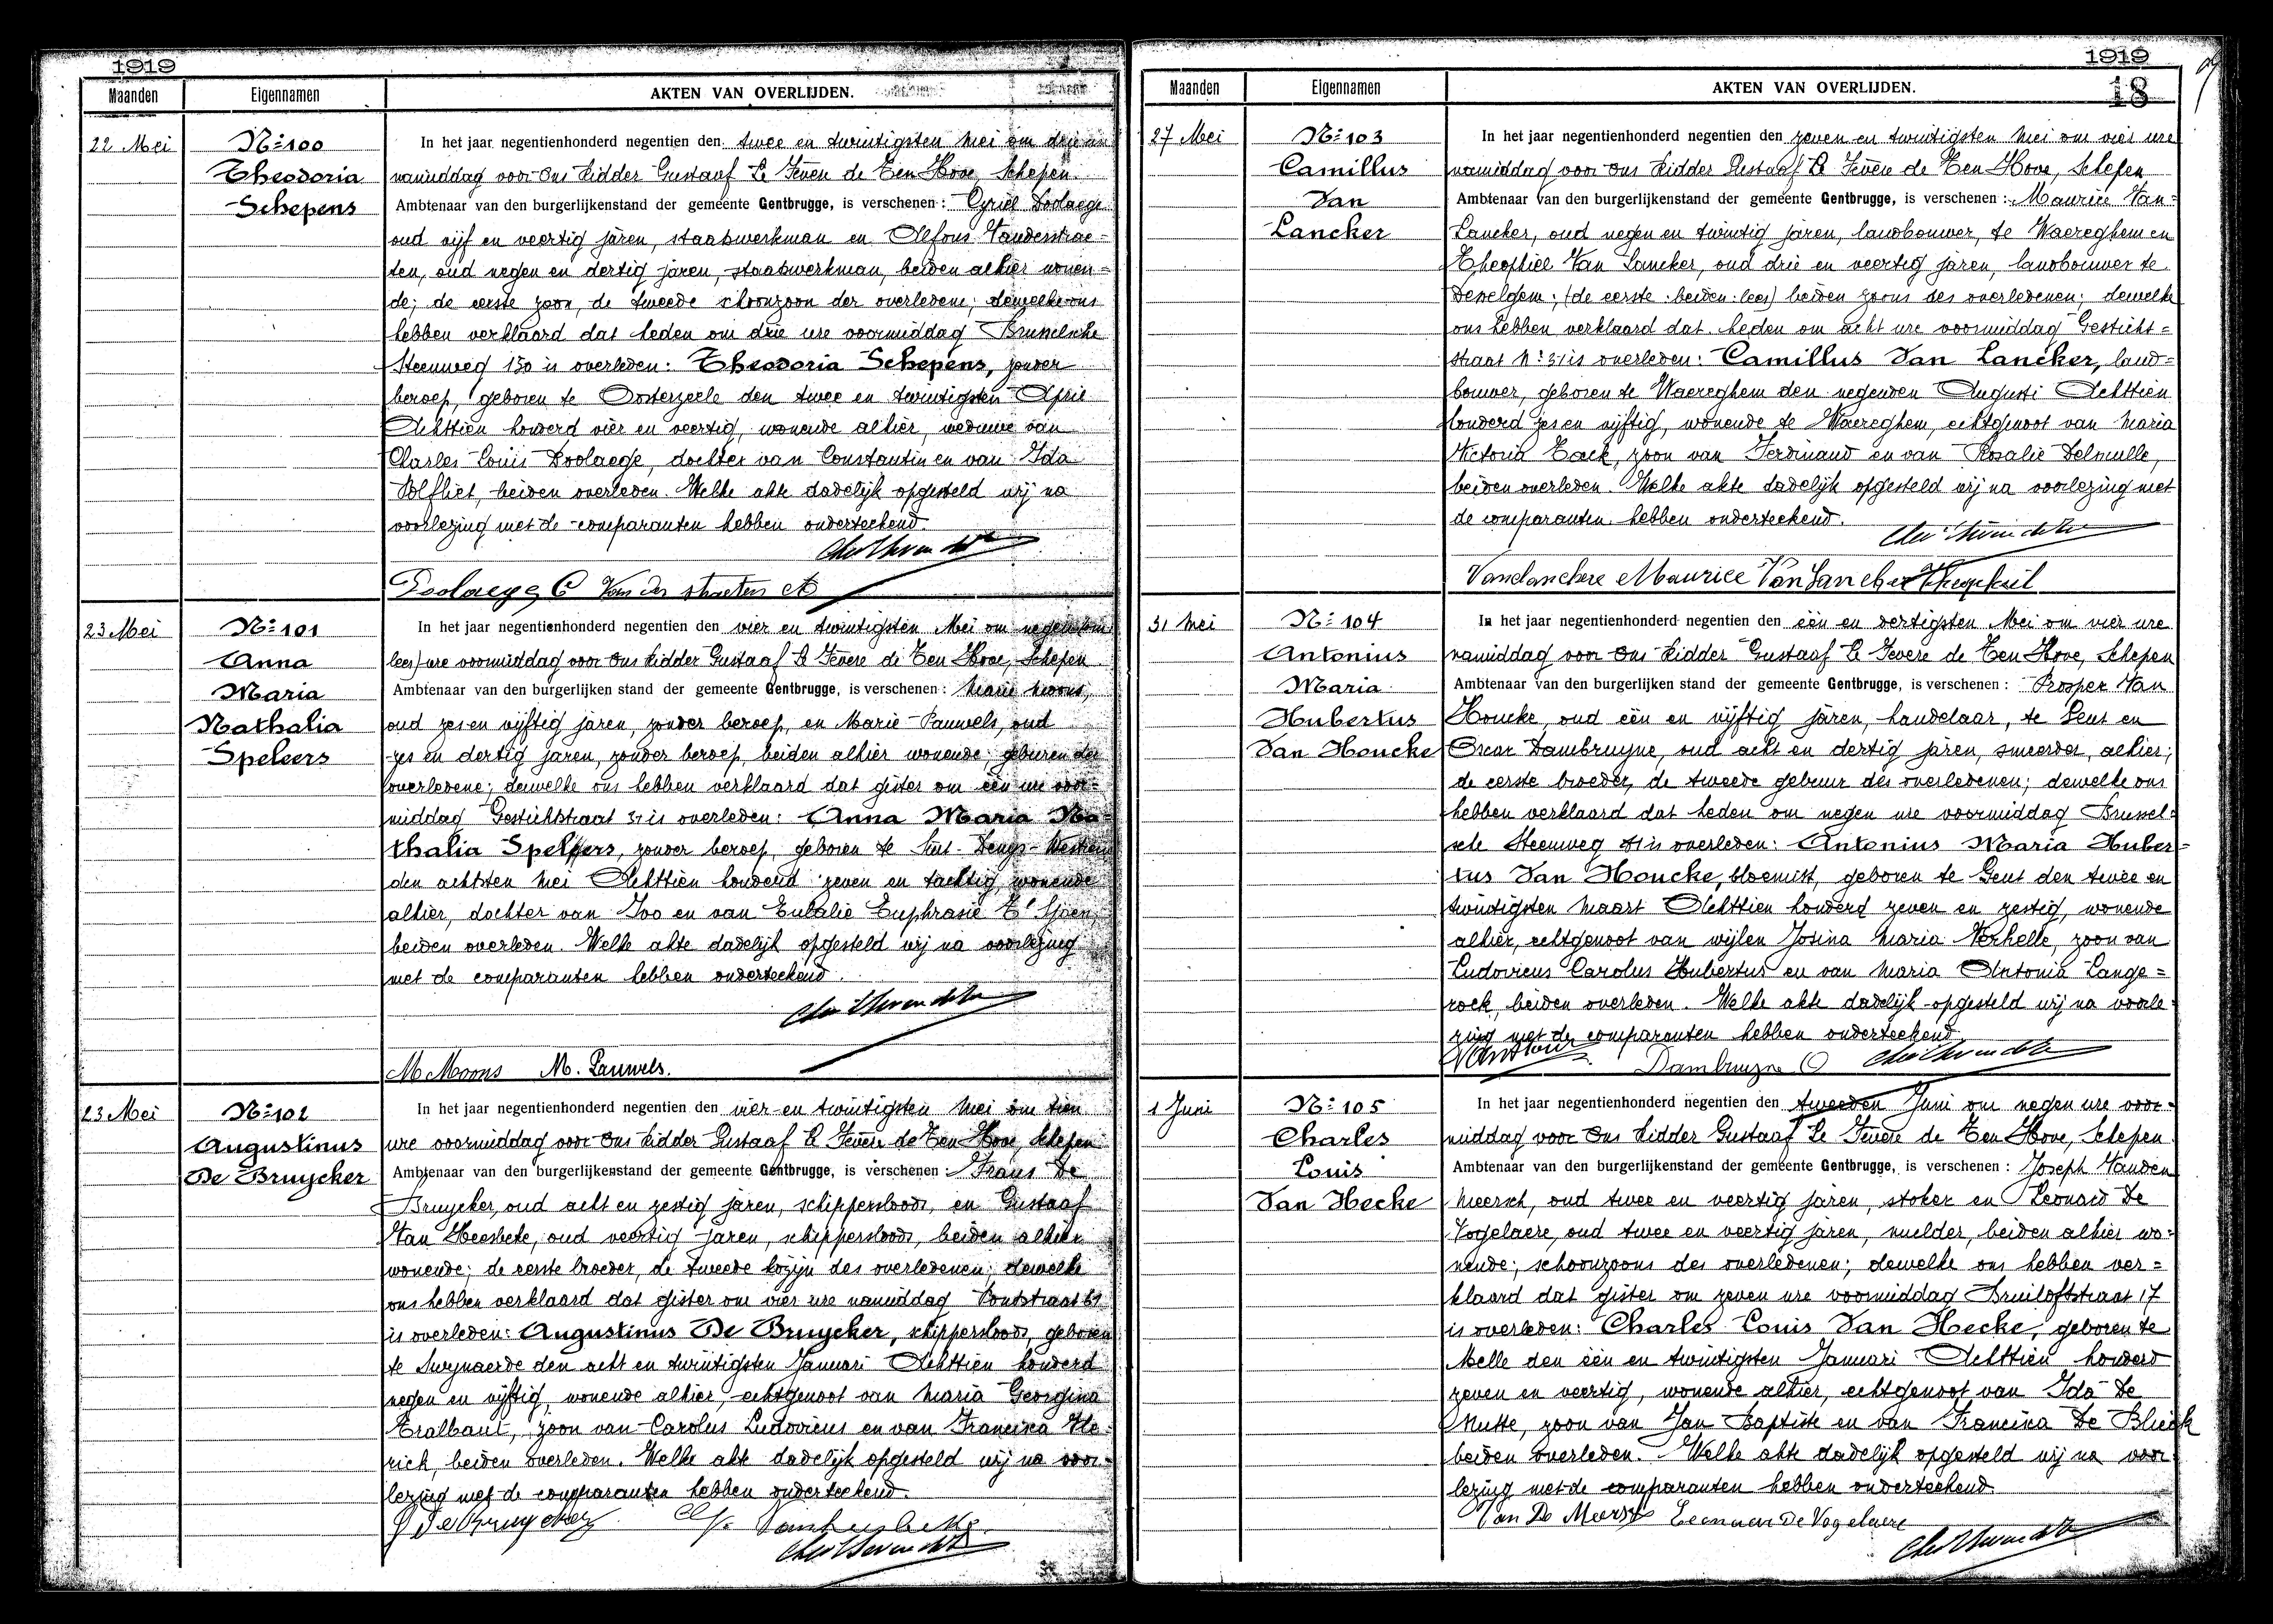 1919
Maanden Eigennamen AKTEN VAN OVERLIJDEN.
22 Mei
N:100
Theodoria
Schepens
In het jaar negentienhonderd negentien den twee en twintigsten Mei om drie ure
namiddag voor Ons Ridder Gustaaf Le Fevere de Ten Hove, Schepen
Ambtenaar van den burgerlijkenstand der gemeente Gentbrugge, is verschenen : Cyriel Doolaege
oud vijf en veertig jaren, staatswerkman en Alfons Vanderstrae=
ten, oud negen en dertig jaren, staatswerkman, beiden alhier wonen=
de; de eerste zoon, de tweede schoonzoon der overledene; dewelke ons
hebben verklaard dat heden om drie ure voormiddag Brusselsche
Steenweg 130 is overleden: Theodoria Schepens, zonder
beroep, geboren te Oosterzeele den twee en twintigsten April
Achttien honderd vier en veertig, wonende alhier, weduwe van
Charles Louis Doolaege, dochter van Constantin en van Ida
Polfliet, beiden overleden. Welke akte dadelijk opgesteld wij na
voorlezing met de comparanten hebben onderteekend.
Doolaege C Van der straeten A
23 Mei
N:101
Anna
Maria
Nathalia
Speleers
In het jaar negentienhonderd negentien den vier en twintigsten Mei om negen
lees) ure voormiddag voor Ons Ridder Gustaaf Le Fevere de Ten Hove, Schepen
Ambtenaar van den burgerlijken stand der gemeente Gentbrugge, is verschenen : Marie Moons,
oud zes en vijftig jaren, zonder beroep, en Marie Pauwels, oud
zes en dertig jaren, zonder beroep, beiden alhier wonende; geburen der
overledene; dewelke ons hebben verklaard dat gister om een ure voor=
middag Gestichtstraat 31 is overleden: Anna Maria Na=
thalia Speleers, zonder beroep, geboren te Sint-Denys-Westrem
den achtsten Mei Achttien honderd zeven en tachtig, wonende
alhier, dochter van Ivo en van Eulalie Euphrasie T'Sjoen
beiden overleden. Welke akte dadelijk opgesteld wij na voorlezing
met de comparanten hebben onderteekend.
M Moons M. Pauwels.
23 Mei
N:102
Augustinus
De Bruycker
In het jaar negentienhonderd negentien den vier en twintigsten Mei om tien
ure voormiddag voor Ons Ridder Gustaaf Le Fevere de Ten Hove, Schepen
Ambtenaar van den burgerlijkenstand der gemeente Gentbrugge, is verschenen : Frans De
Bruycker, oud acht en zestig jaren, schippersloods, en Gustaaf
Van Heesbeke, oud veertig jaren, schippersloods, beiden alhier
wonende; de eerste broeder, de tweede kozijn des overledenen; dewelke
ons hebben verklaard dat gister om vier ure namiddag Pontstraat 61
is overleden: Augustinus De Bruycker, schippersloods, geboren
te Swynaerde den acht en twintigsten Januari Achttien honderd
negen en vijftig, wonende alhier, echtgenoot van Maria Georgina
Tralbaut, zoon van Carolus Ludovicus en van Francisca He=
rich, beiden overleden. Welke akte dadelijk opgesteld wij na voor=
lezing met de comparanten hebben onderteekend.
De Bruycker
1919
18
Maanden Eigennamen AKTEN VAN OVERLIJDEN.
27 Mei
N:103
Camillus
Van
Lancker
In het jaar negentienhonderd negentien den zeven en twintigsten Mei om vier ure
namiddag voor Ons Ridder Gustaaf Le Fevere de Ten Hove, Schepen
Ambtenaar van den burgerlijkenstand der gemeente Gentbrugge, is verschenen : Maurice Van=
Lancker, oud negen en twintig jaren, landbouwer, te Waereghem en
Theophiel Van Lancker, oud drie en veertig jaren, landbouwer te
Desselgem; (de eerste: beiden: lees) beiden zoons des overledenen; dewelke
ons hebben verklaard dat heden om acht ure voormiddag Gesticht=
straat N: 31 is overleden: Camillus Van Lancker, land=
bouwer, geboren te Waereghem den negenden Augusti Achttien
honderd zes en vijftig, wonende te Waereghem, echtgenoot van Maria
Victoria Tack, zoon van Ferdinand en van Rosalie Delmulle,
beiden overleden. Welke akte dadelijk opgesteld wij na voorlezing met
de comparanten hebben onderteekend.
Vanlanckere Maurice Van Lancker Theophiel
31 Mei
N:104
Antonius
Maria
Hubertus
Van Houcke
In het jaar negentienhonderd negentien den een en dertigsten Mei om vier ure
namiddag voor Ons Ridder Gustaaf Le Fevere de Ten Hove, Schepen
Ambtenaar van den burgerlijken stand der gemeente Gentbrugge, is verschenen : Prosper Van
Houcke, oud een en vijftig jaren, handelaar, te Gent en
Oscar Dambruyne, oud acht en dertig jaren, smeerder, alhier;
de eerste broeder, de tweede gebuur des overledenen; dewelke ons
hebben verklaard dat heden om negen ure voormiddag Brussel=
sche Steenweg is overleden: Antonius Maria Huber=
tus Van Houcke, bloemist, geboren te Gent den twee en
twintigsten Maart Achttien honderd zeven en zestig, wonende
alhier, echtgenoot van wijlen Josina Maria Verhelle, zoon van
Ludovicus Carolus Hubertus en van Maria Antonia Lange=
rock, beiden overleden. Welke akte dadelijk opgesteld wij na voorle=
zing met de comparanten hebben onderteekend.
Dambruyne O
1 Juni
N:105
Charles
Louis
Van Hecke
In het jaar negentienhonderd negentien den tweeden Juni om negen ure voor=
middag voor Ons Ridder Gustaaf Le Fevere de Ten Hove, Schepen
Ambtenaar van den burgerlijkenstand der gemeente Gentbrugge, is verschenen : Joseph Vanden
Meersch, oud twee en veertig jaren, stoker en Leonard De
Vogelaere, oud twee en veertig jaren, mulder, beiden alhier wo=
nende; schoonzoons des overledenen; dewelke ons hebben ver=
klaard dat gister om zeven ure voormiddag Bruiloftstraat 17
is overleden: Charles Louis Van Hecke, geboren te
Melle den een en twintigsten Januari Achttien honderd
zeven en veertig, wonende alhier, echtgenoot van Ida De
Mutte, zoon van Jan Baptiste en van Francisca De Blieck
beiden overleden. Welke akte dadelijk opgesteld wij na voor
lezing met de comparanten hebben onderteekend.
Van De Meersch Leonard De Vogelaere